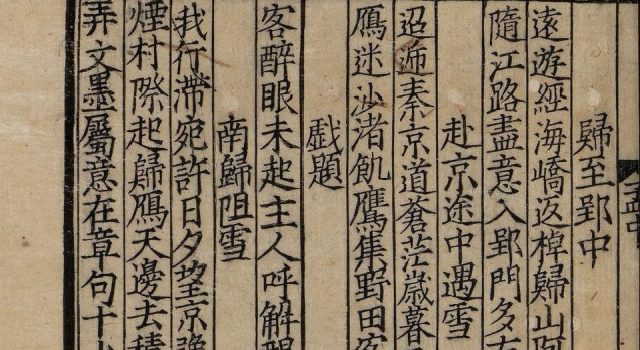 歸至郢中
遠遊經海嶠返棹歸山阿
隨江路盡意入郢門多
赴京途中遇雪
迢逓秦京道蒼茫歲暮
鴈迷沙渚飢鷹集野田客
戯題
客醉眼未起主人呼解酲
南歸阻雪
我行滯宛許日夕望京豫
煙村際起歸鴈天邊去積
弄文墨屬意在章句十